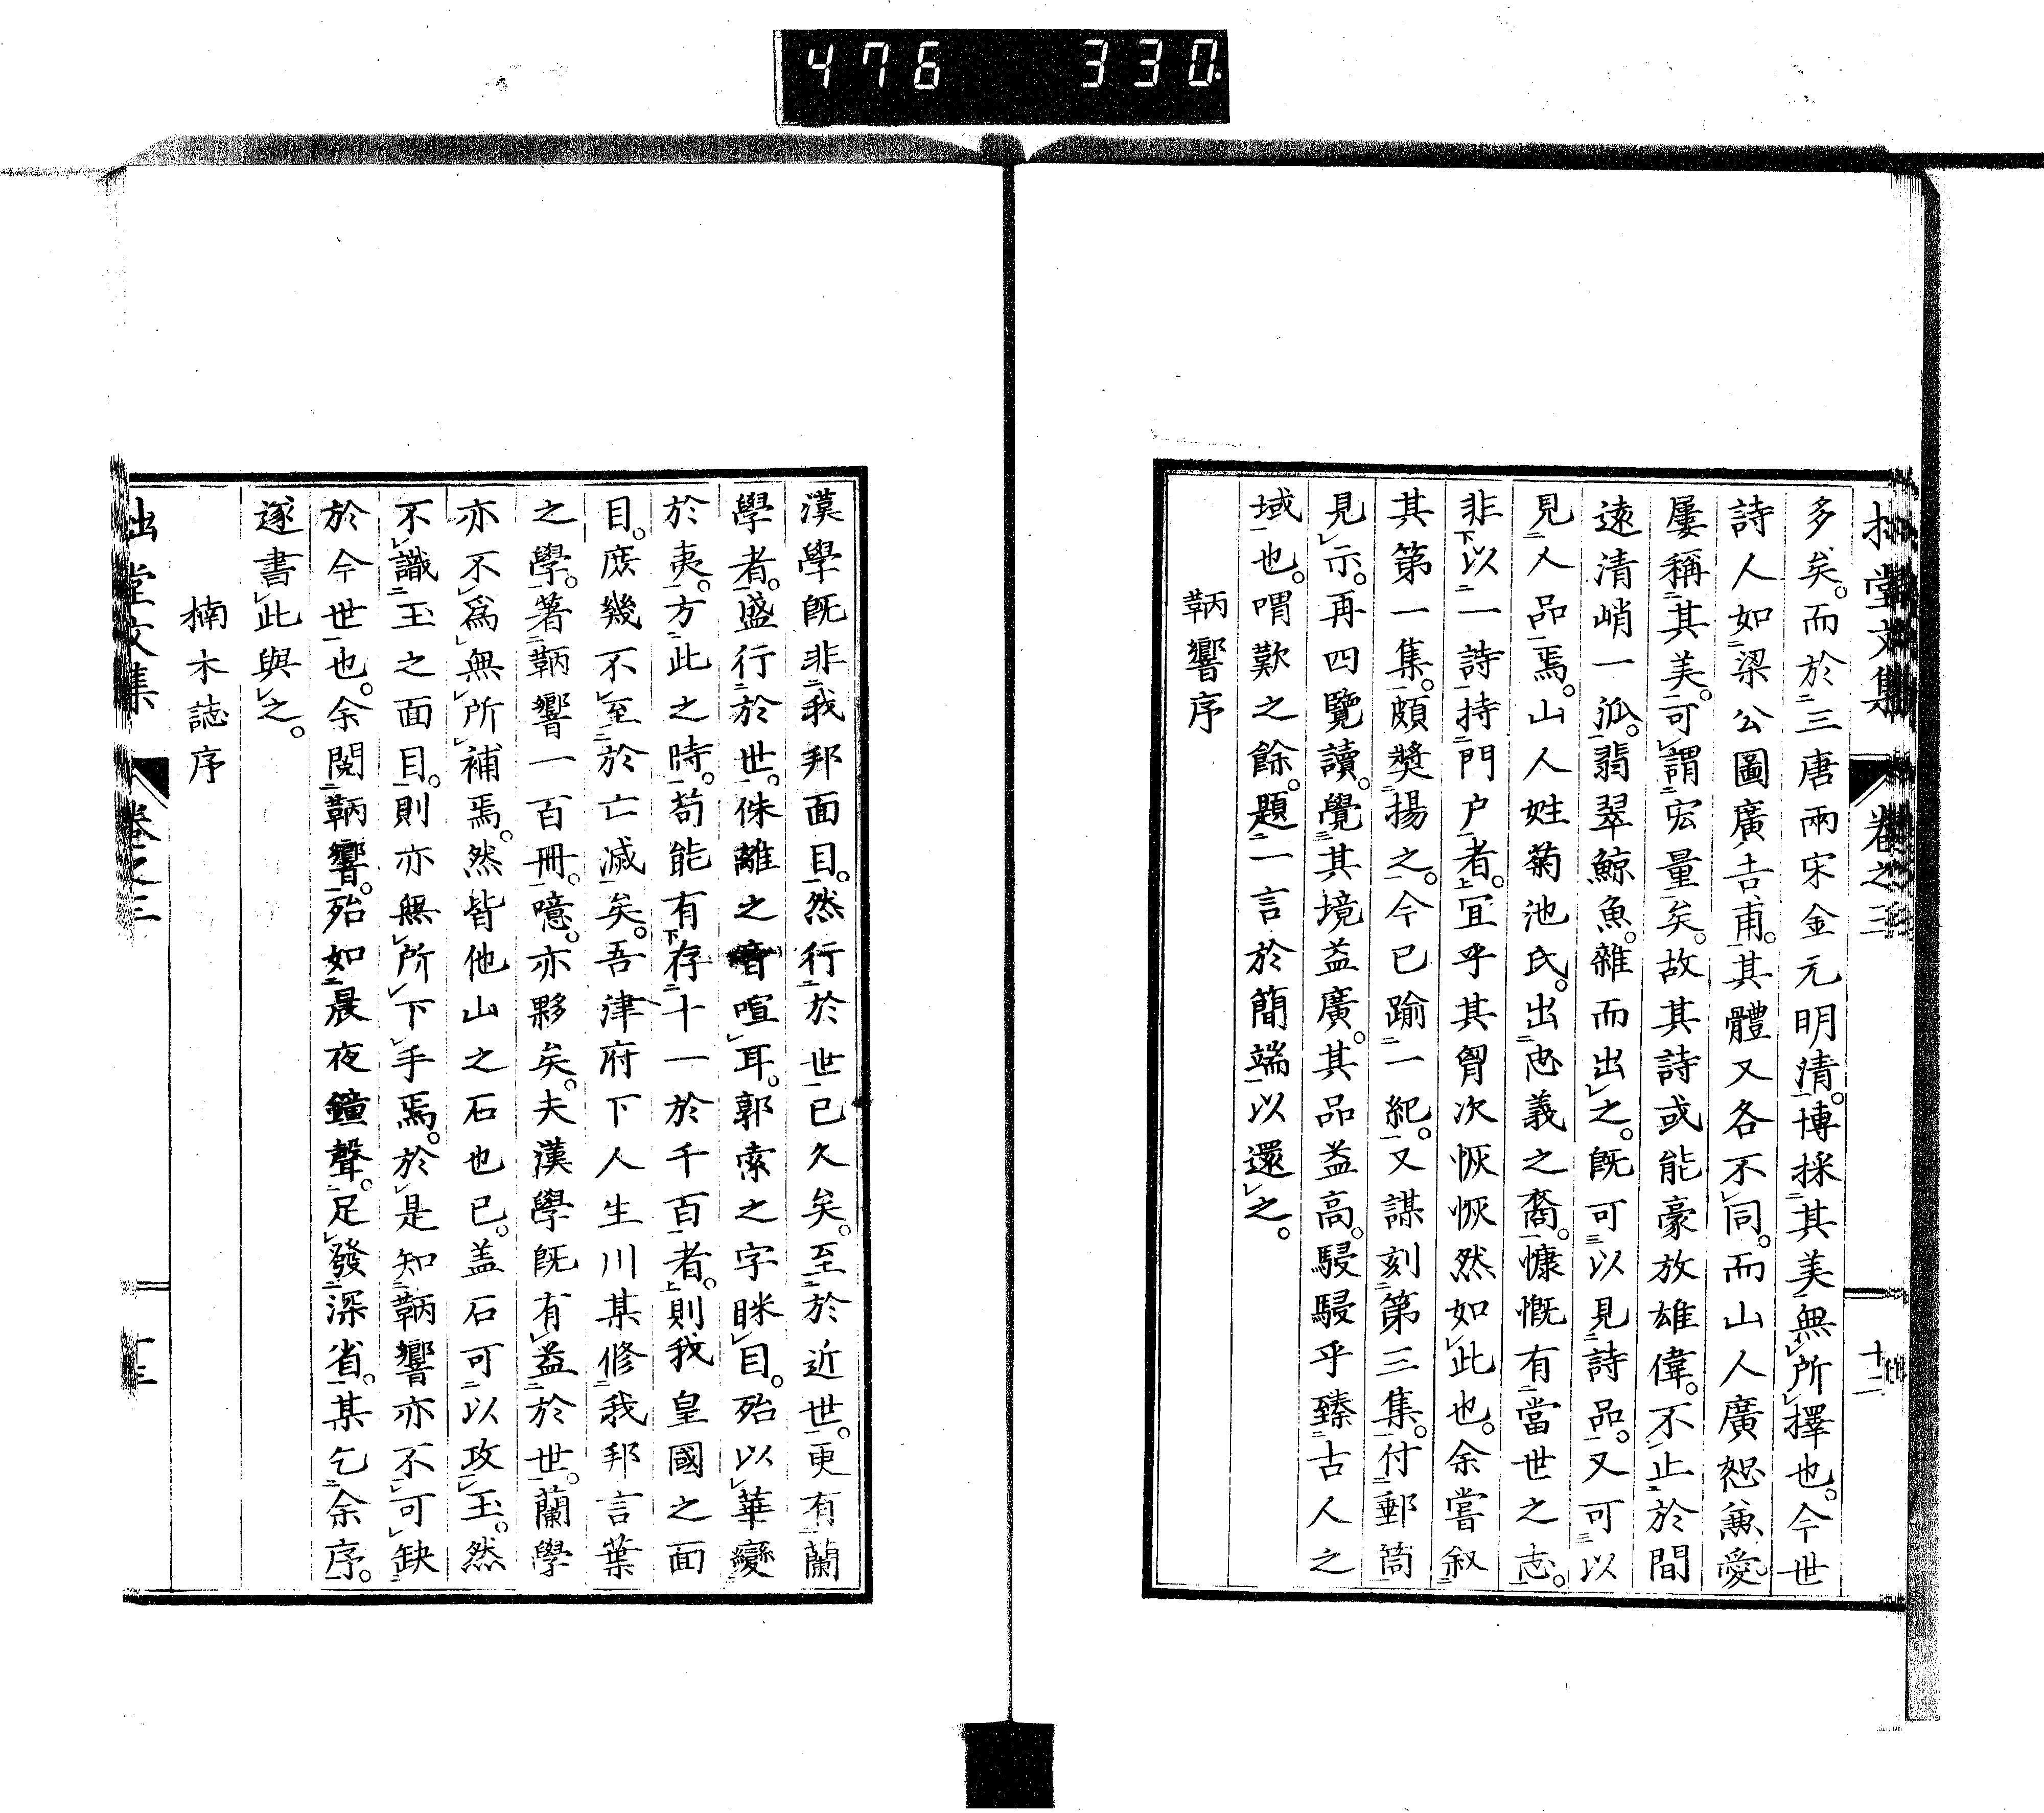 476 330
拙堂文集 卷之三 十二
多矣。而於三唐兩宋金元明清。博採其美無所擇也。今世
詩人如梁公圖廣吉甫。其體又各不同。而山人廣恕兼愛。
屢稱其美。可謂宏量矣。故其詩或能豪放雄偉。不止於間
遠清峭一派。翡翠鯨魚。雜而出之。既可以見詩品。又可以
見人品焉。山人姓菊池氏。出忠義之裔。慷慨有當世之志。
非以一詩持門户者。宜乎其胷次恢恢然如此也。余嘗叙
其第一集。頗奬揚之。今已踰一紀。又謀刻第三集。付郵筒
見示。再四覽讀。覺其境益廣。其品益高。駸駸乎臻古人之
域也。喟歎之餘。題一言於簡端以還之。
鞆響序
漢學既非我邦面目。然行於世已久矣。至於近世。更有蘭
學者。盛行於世。侏離之音喧耳。郭索之字眯目。殆以華變
於夷。方此之時。苟能有存十一於千百者。則我皇國之面
目。庶幾不至於亡滅矣。吾津府下人生川某修我邦言葉
之學。著鞆響一百冊。噫。亦夥矣。夫漢學既有益於世。蘭學
亦不爲無所補焉。然皆他山之石也已。盖石可以攻玉。然
不識玉之面目。則亦無所下手焉。於是知鞆響亦不可缺
於今世也。余閱鞆響。殆如晨夜鐘聲。足發深省。某乞余序。
遂書此與之。
楠木誌序
拙堂文集 卷之三 十三